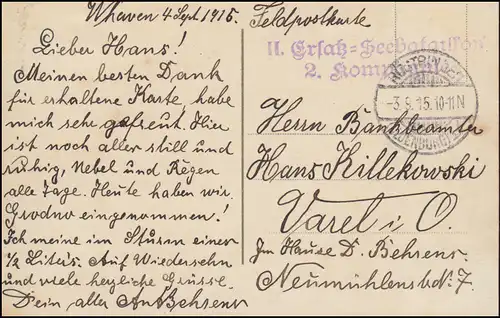 Whaven 4 Sept. 1915.
Lieber Hans!
Meinen besten Dank
für erhaltene Karte, habe
mich sehr gefreut. Hier
ist noch aller still und
ruhig, Nebel und Regen
alle Tage. Heute haben wir
Grodno eingenommen!
Ich meine im Sturm einer
1/2 Liter's. Auf Wiedersehn
und viele herzliche Grüsse.
Dein alter Behrens
Feldpostkarte
II. Ersatz-Seebataillon
2. Komp
-3.9.15.10-11N
Herrn Bankbeamter
Hans Killekowski
Varel i. O.
Im Hause D. Behrens
Neumühlenstr. 7.